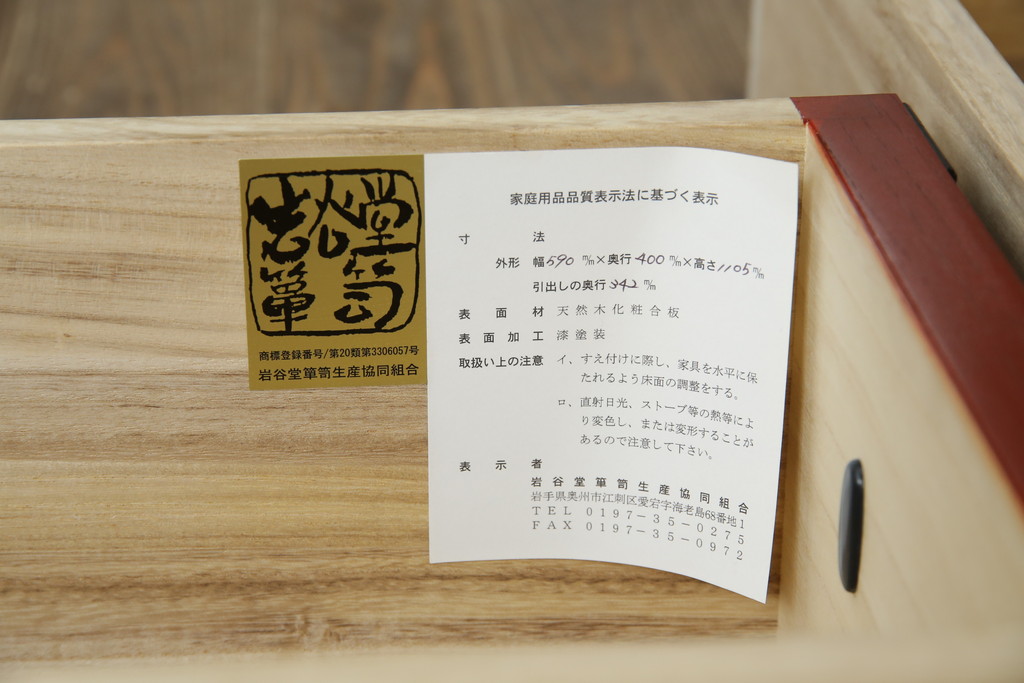 岩谷堂
箪笥
商標登録番号/第20類第3306057号
岩谷堂箪笥生産協同組合
家庭用品品質表示法に基づく表示
寸法
外形 幅590㎜×奥行400㎜×高さ1105㎜
引出しの奥行342㎜
表面材 天然木化粧合板
表面加工 漆塗装
取扱い上の注意 イ、すえ付けに際し、家具を水平に保
たれるよう床面の調整をする。
ロ、直射日光、ストーブ等の熱等によ
り変色し、または変形することが
あるので注意して下さい。
表示者
岩谷堂箪笥生産協同組合
岩手県奥州市江刺区愛宕字海老島68番地1
TEL 0197-35-0275
FAX 0197-35-0972